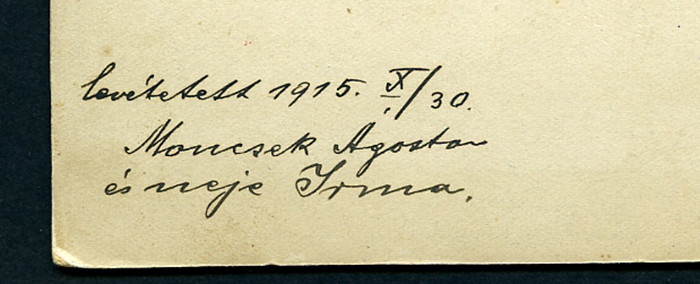 levétetett 1915. X/30.
Moncsek Ágoston
és neje Irma.